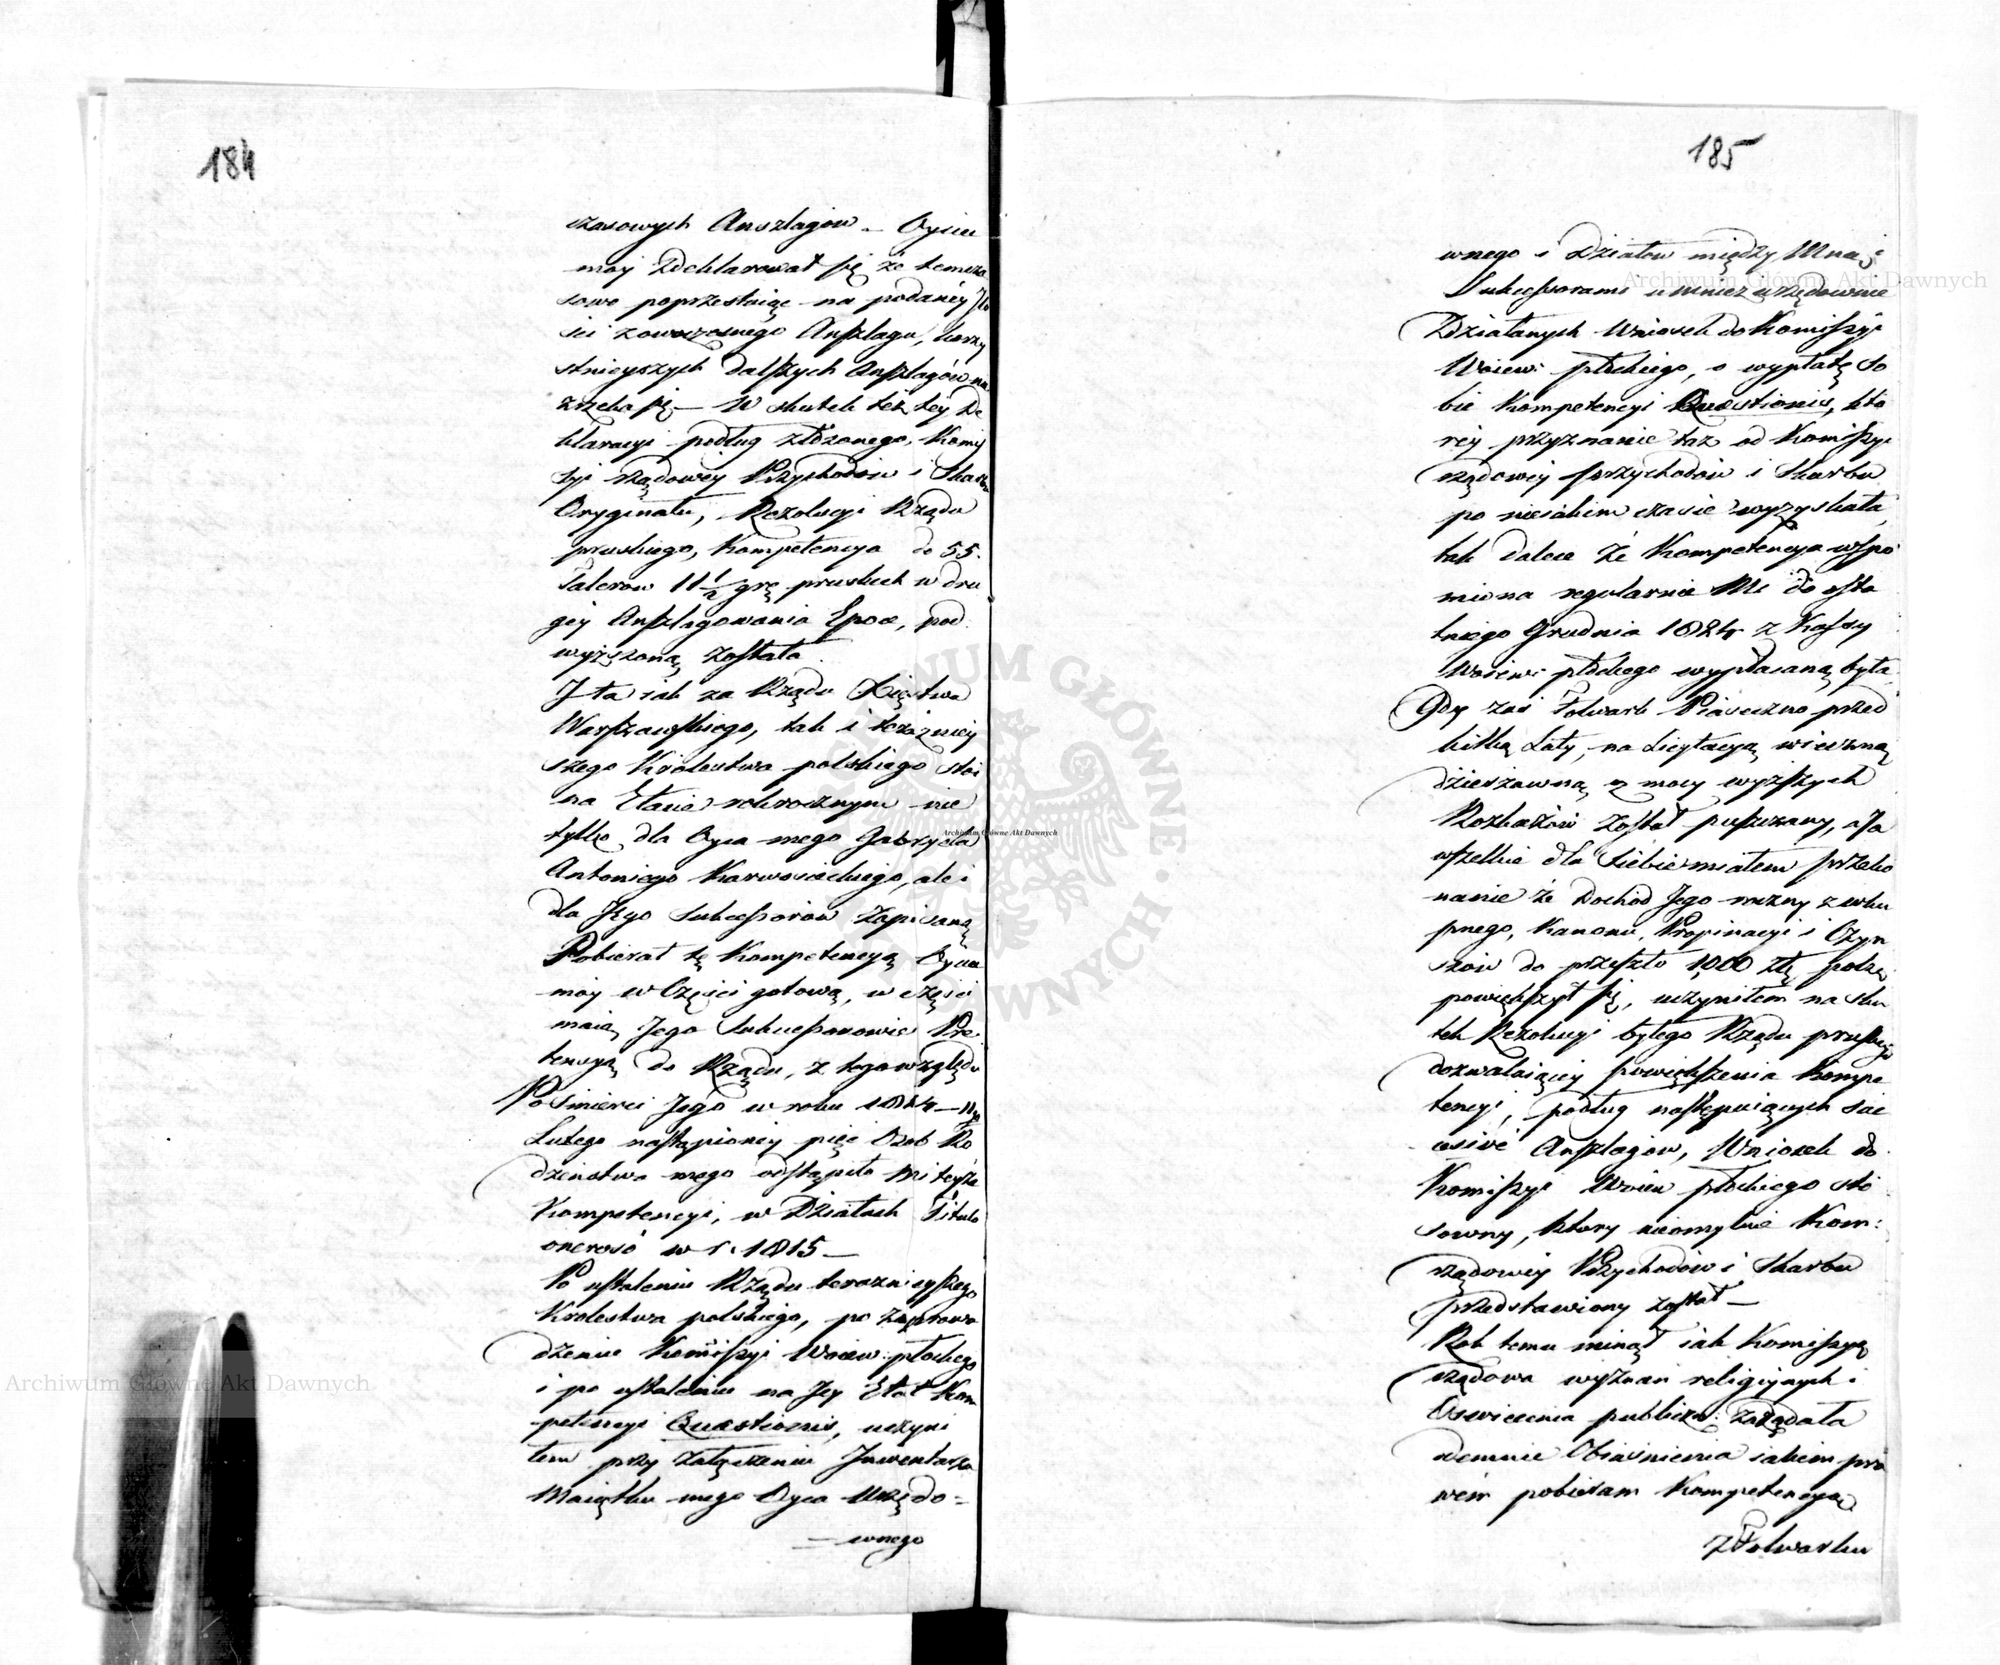 184
szasowych Anszlagow – Oyciec
moy zdeklarował się że temcza
sowo poprzestaiąc na podaney Ilo
ści zowoczesnego Anszlagu, korzy
stnieyszych dalszych Anszlagów nie
zrzeka się – W skutek też tey De
klaracyi podług złożonego, Komis
syi rządowey Przychodów i Skarbu
Oryginału, Rezolucyi Rządu
pruskiego, Kompetencya do 55.
Talerow 11 1/2 grę pruskich w dru
giy Anszlagowania Epoce, pod
wyższoną została
I ta iak za Rządu Xięstwa
Warszawskiego, tak i teraźniey
szego Królestwa polskiego stoi
na Etacie rokrocznym nie
tylko dla Oyca mego Gabryela
Antoniego Karwosieckiego, ale i
dla Jego Sukcessorów zapisaną
Pobierał tę Kompetencyą Oyciec
moy w Części gotową, w części
maią Jego Sukcessorowie Pre
tensyą do Rządu, z tego względu
Po Śmierci Jego w roku 1814
Lutego nastąpioney pięć Osob Ro
dzeństwa mego odstąpiło mi teyże
Kompetencyi, w Działach Titulo
oneroso w r. 1815 –
Po ustaleniu Rządu teraznieyszego
Krolestwa polskiego, po zaprowa
dzeniu Komissyi Woiew: płockiego
i po ustaleniu na Jey Etat Kom
petencyi Quaestionis, uczyni
łem przy załączeniu Inwentarza
Maiątku mego Oyca Urzędo=
– wnego
185
wnego i Działow między Mną i
Sukcessorami u mniez urzędownie
Zdziałanych Wniosek do Komissyi
Woiew: płockiego, o wypłatę So
bie Kompetencyi Quaestionis, kto
rey przyznanie taż od Komissyi
rządowey przychodów i Skarbu
po nieiakim czasie wyzyskała,
tak dalece że Kompetencya wspo
miona regularnie Mi do osta
tniego Grudnia 1824 z Kassy
Woiew: płockiego wypłacaną była
Gdy zaś Folwark Piaseczno przed
kilką Laty, na Licytacyą wieczną
dzierżawną z mocy wyższych
Rozkazów został puszczany, a Ja
wszelkie dla siebie miałem przeko
nanie że Dochód Jego roczny z wku
pnego, Kanonu, Propinacyi i Czyn
szów do przeszło 1,000 Złt polsk:
powiększył się, uczyniłem na sku
tek Rezolucyi byłego Rządu pruskiego
dozwalaiącey powiększenia Kompe
tencyi, podług następuiących iac
Anszlagow, Wniosek do
Komissyi Woiew płockiego sto
sowny, ktory nieomylnie Kom:
rządowey Przychodów i Skarbu
przedstawiony został –
Rok temu minął iak Komissya
rządowa wyznań religiynych i
Oswiecenia publiczn: zażądała
odemnie Obiaśnienia iakiem pra
wem pobieram Kompetencyą
z Folwarku
Archiwum Główne Akt Dawnych
Archiwum Główne Akt Dawnych
Archiwum Główne Akt Dawnych